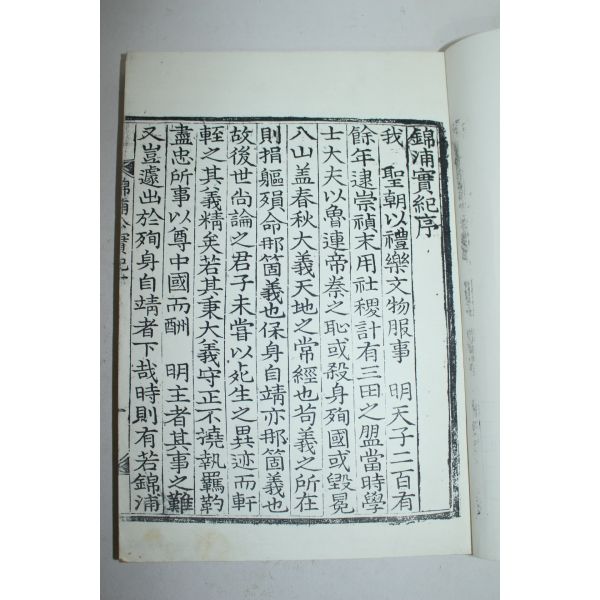 錦浦實紀序
我 聖朝以禮樂文物服事 明天子二百有
餘年逮崇禎末用社稷計有三田之盟當時學
士大夫以魯連帝秦之恥或殺身殉國或毀冕
入山盖春秋大義天地之常經也苟義之所在
則捐軀殞命那箇義也保身自靖亦那箇義也
故後世尚論之君子未嘗以死生之異迹而軒
輊之其義精矣若其秉大義守正不撓執羈靮
盡忠所事以尊中國而酬 明主者其事之難
又豈遽出於殉身自靖者下哉時則有若錦浦
錦浦公實紀